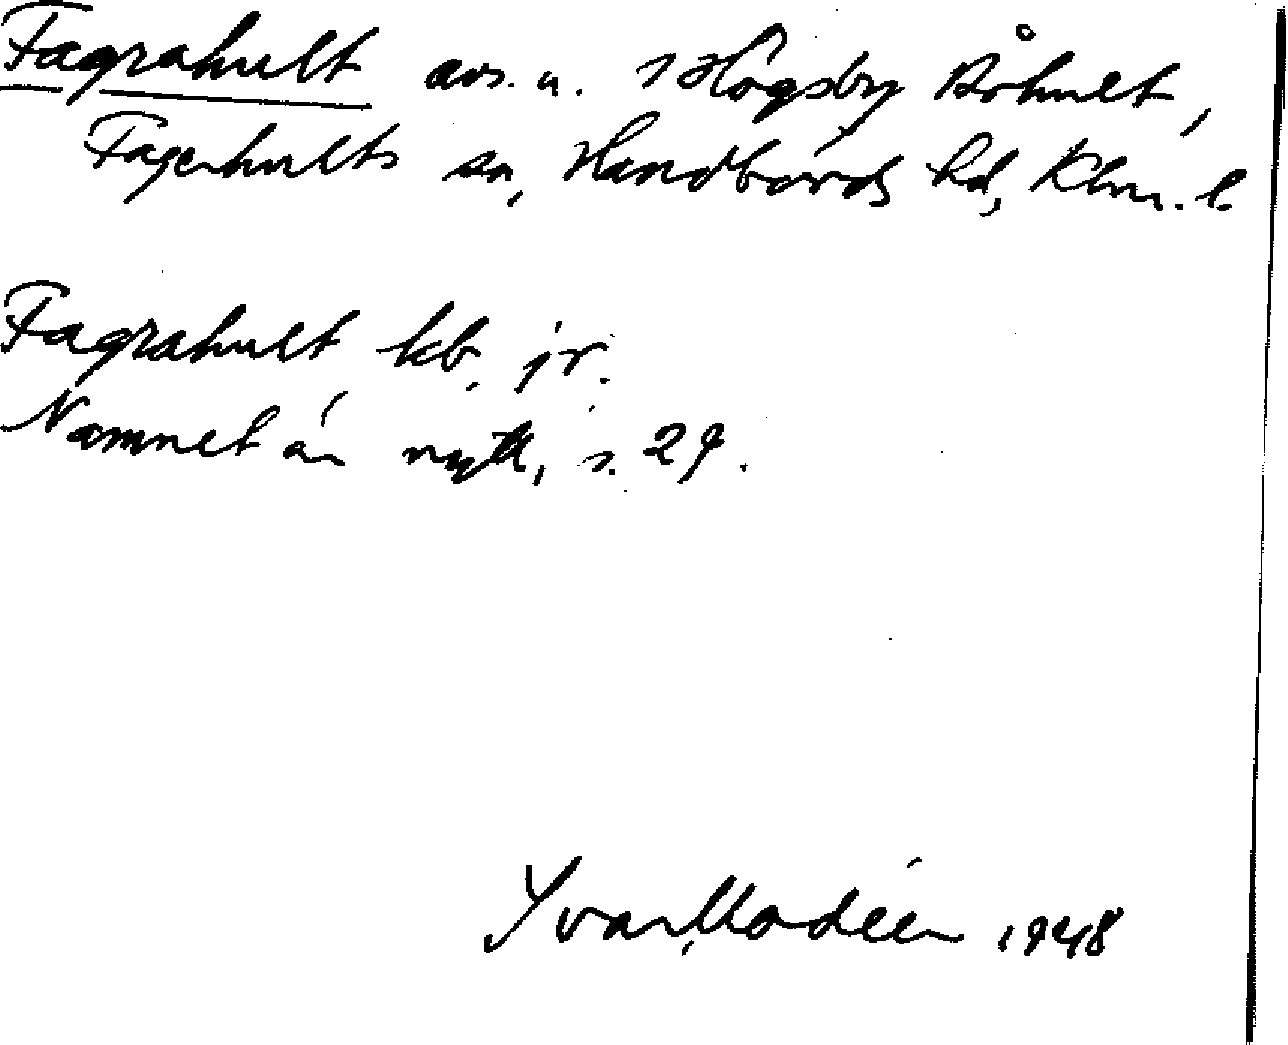 Fagrahult avs. u. Högsby Råhult,
Fagerhults sn, Handbörds hd, Klm. l.
Fagrahult kb. jr.
Namnet är nytt, s. 29.
Yvar Modéer 1948